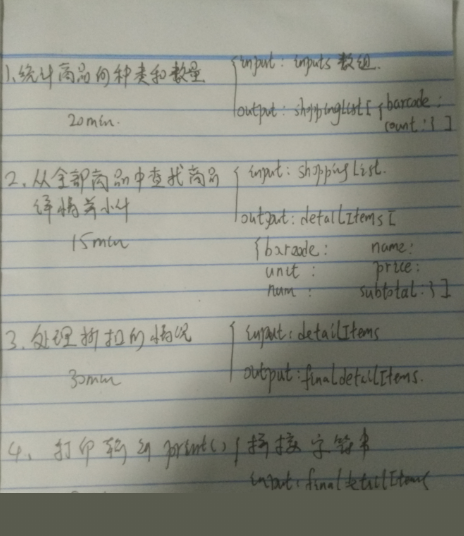 1. 统计商品的种类和数量 { input: inputs 数组.
output: shoppingList [ { barcode:
20min. count: } ]
2. 从全部商品中查找商品 { input: shoppingList.
详情并小计 output: detailItems [
15min { barcode: name:
unit: price:
num: subtotal: } ]
3. 处理折扣的情况 { input: detailItems
30min output: finaldetailItems.
4. 打印输出 print() / 拼接字符串
input: finaldetailItems